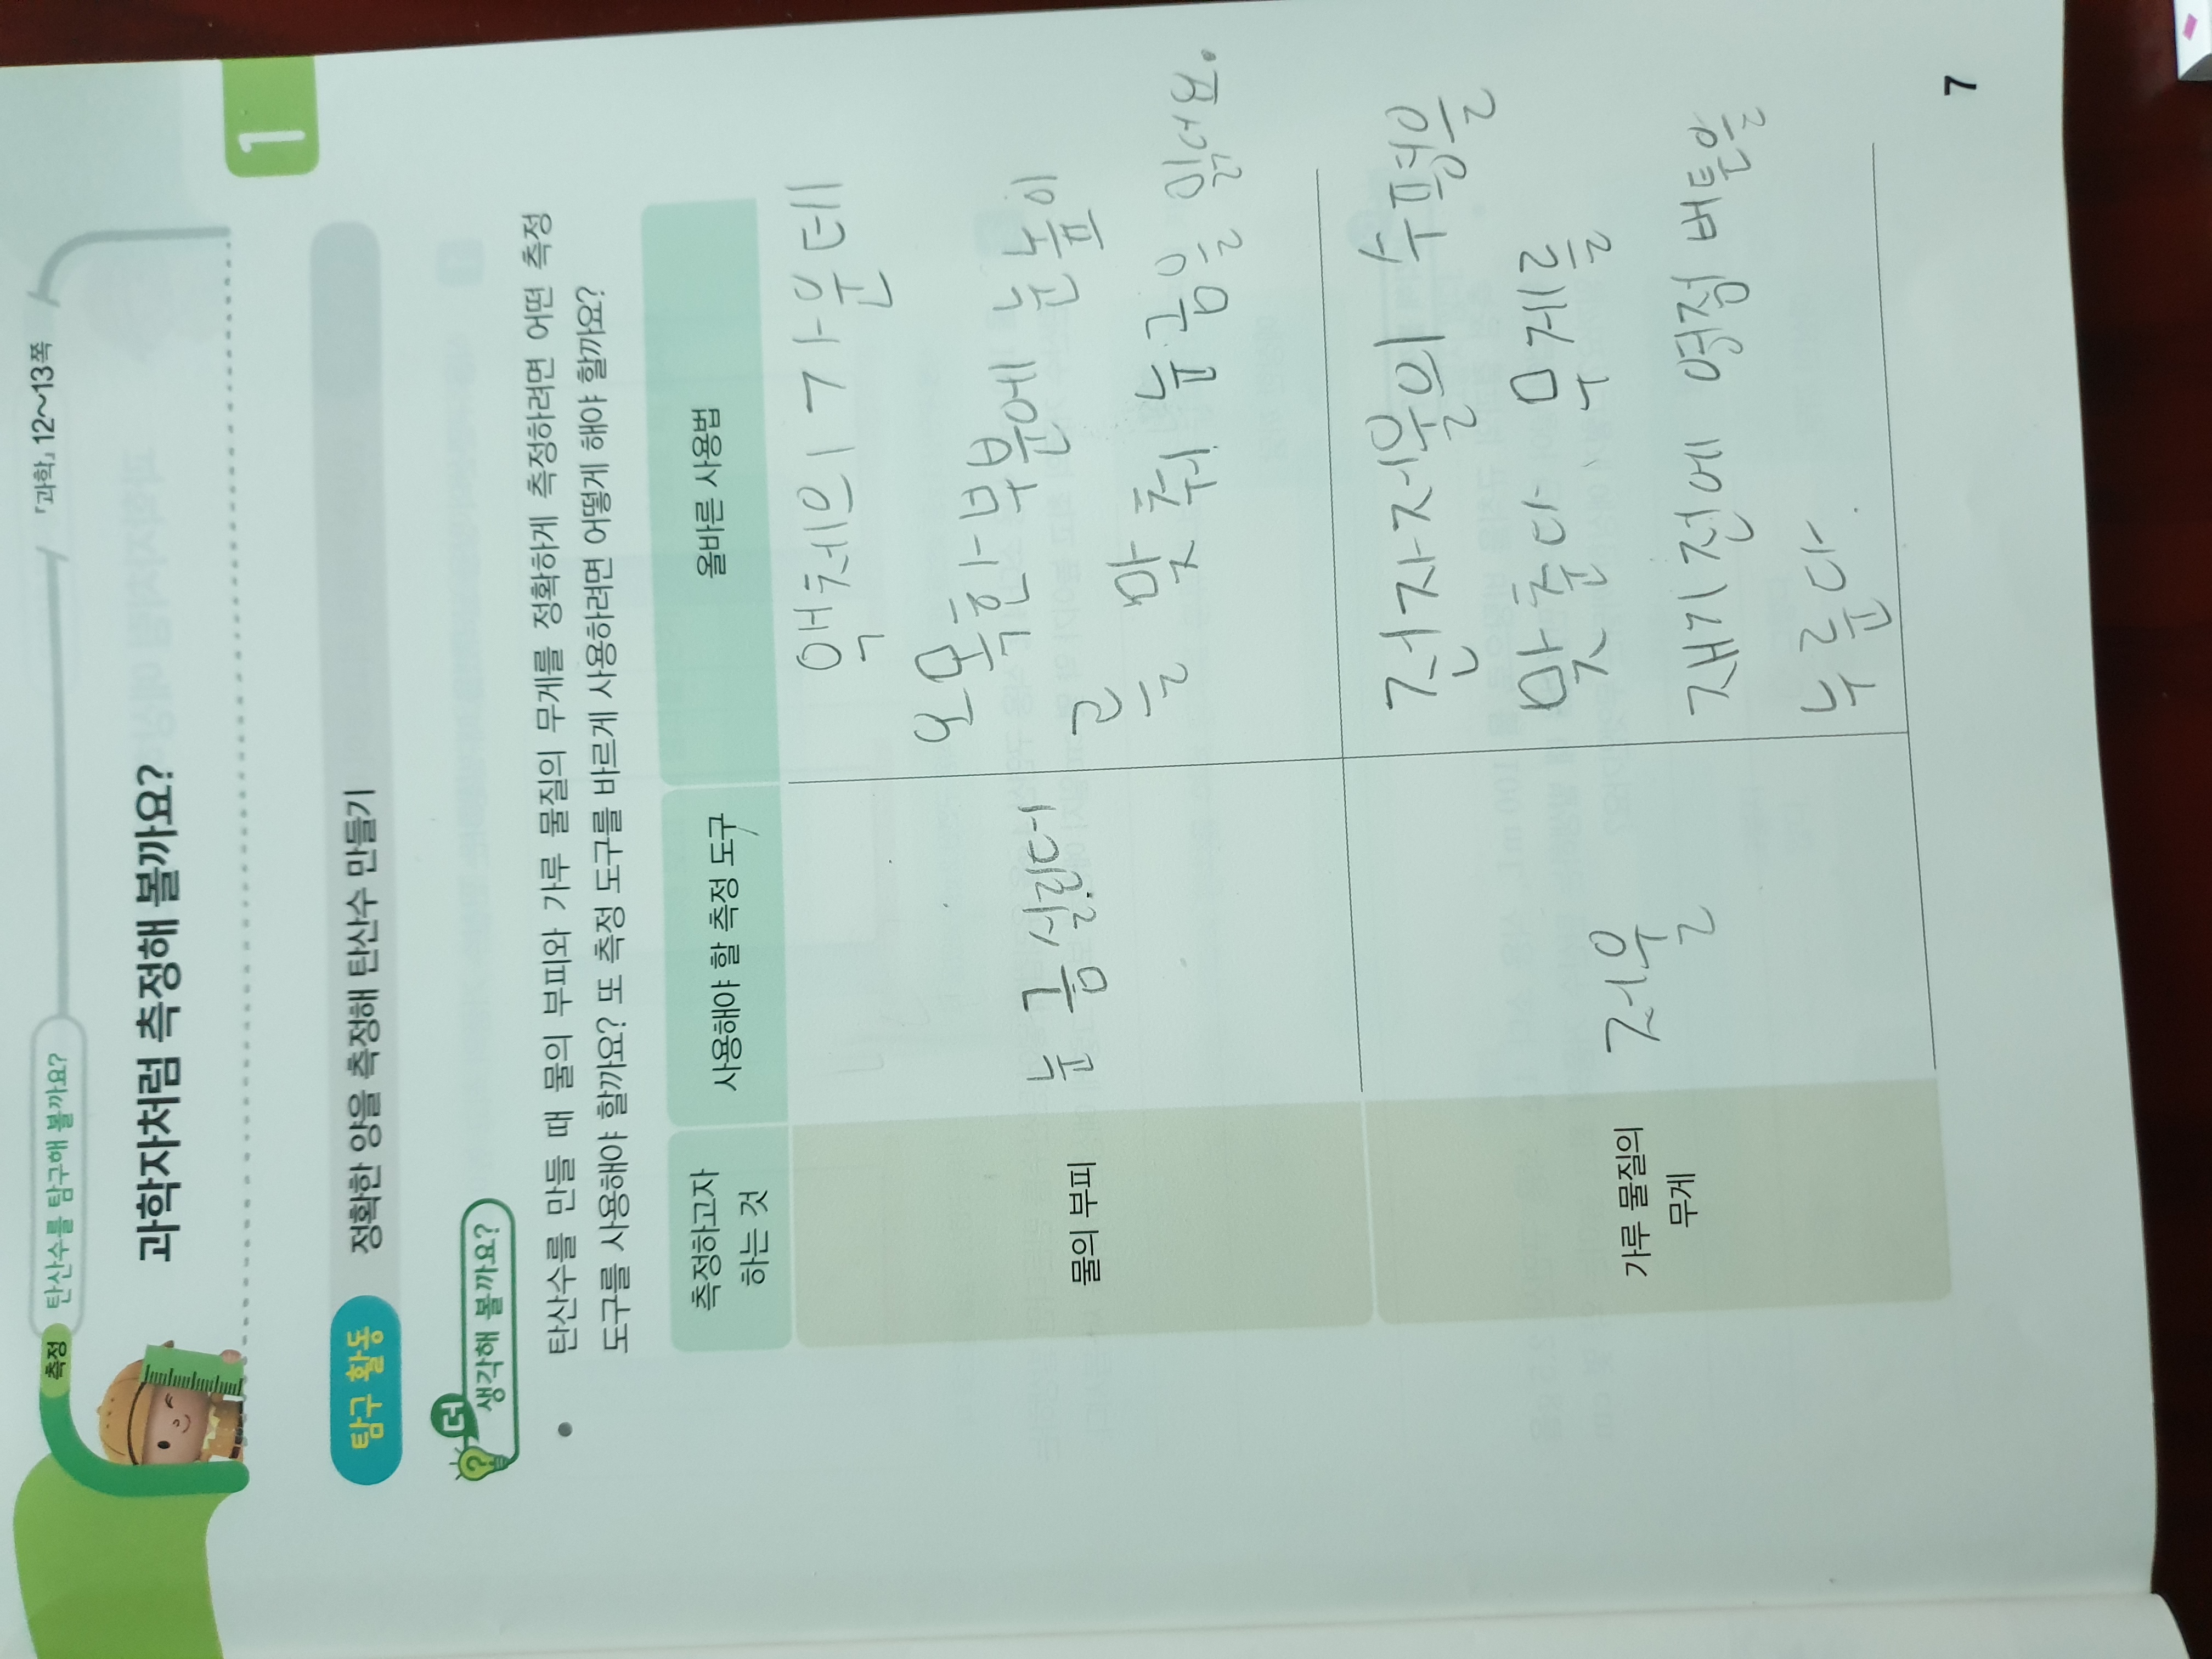 측정 탄산수를 탐구해 볼까요?
『과학』 12~13쪽
1
과학자처럼 측정해 볼까요?
탐구 활동 정확한 양을 측정해 탄산수 만들기
더 생각해 볼까요?
• 탄산수를 만들 때 물의 부피와 가루 물질의 무게를 정확하게 측정하려면 어떤 측정
도구를 사용해야 할까요? 또 측정 도구를 바르게 사용하려면 어떻게 해야 할까요?
측정하고자
하는 것
사용해야 할 측정 도구
올바른 사용법
물의 부피
눈금실린더
액체의 가운데
오목한 부분에 눈높이
를 맞춰 눞금을 읽어요.
가루 물질의
무게
저울
전자저울의 수평을
맞춘다 무게를
재기전에 영점 버튼을
누른다.
7